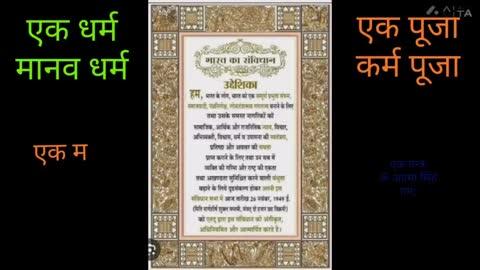 एक धर्म
मानव धर्म
एक म
भारत का संविधान
उद्देशिका
हम, भारत के लोग, भारत को एक सम्पूर्ण प्रभुत्व संपन्न,
समाजवादी, पंथनिरपेक्ष, लोकतंत्रात्मक गणराज्य बनाने के लिए
तथा उसके समस्त नागरिकों को
सामाजिक, आर्थिक और राजनैतिक न्याय, विचार,
अभिव्यक्ति, विश्वास, धर्म व उपासना की स्वतंत्रता,
प्रतिष्ठा और अवसर की समता
प्राप्त कराने के लिए तथा उन सब में
व्यक्ति की गरिमा और राष्ट्र की एकता
तथा अखण्डता सुनिश्चित करने वाली बंधुता
बढ़ाने के लिये दृढसंकल्प होकर अपनी इस
संविधान सभा में आज तारीख 26 नवंबर, 1949 ई.
को एतद् द्वारा इस संविधान को अंगीकृत,
अधिनियमित और आत्मार्पित करते है।
एक पूजा
कर्म पूजा